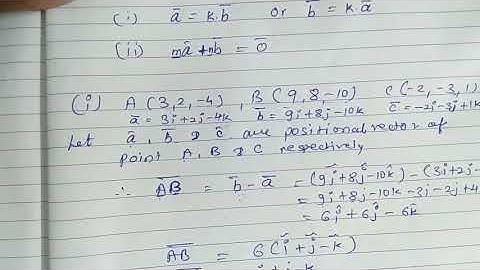 (i) a̅ = k.b̅ or b̅ = k.a̅
(ii) ma̅ + nb̅ = 0̅
(i) A (3, 2, -4) , B (9, 8, -10) C (-2, -3, 1)
a̅ = 3i + 2j - 4k b̅ = 9i + 8j - 10k c̅ = -2i - 3j + 1k
Let a̅, b̅ & c̅ are positional vector of
point A, B & C respectively
∴ A̅B̅ = b̅ - a̅ = (9î + 8ĵ - 10k̂) - (3i + 2j -
= 9i + 8j - 10k - 3i - 2j + 4
= 6î + 6ĵ - 6k̂
A̅B̅ = 6(î + ĵ - k̂)